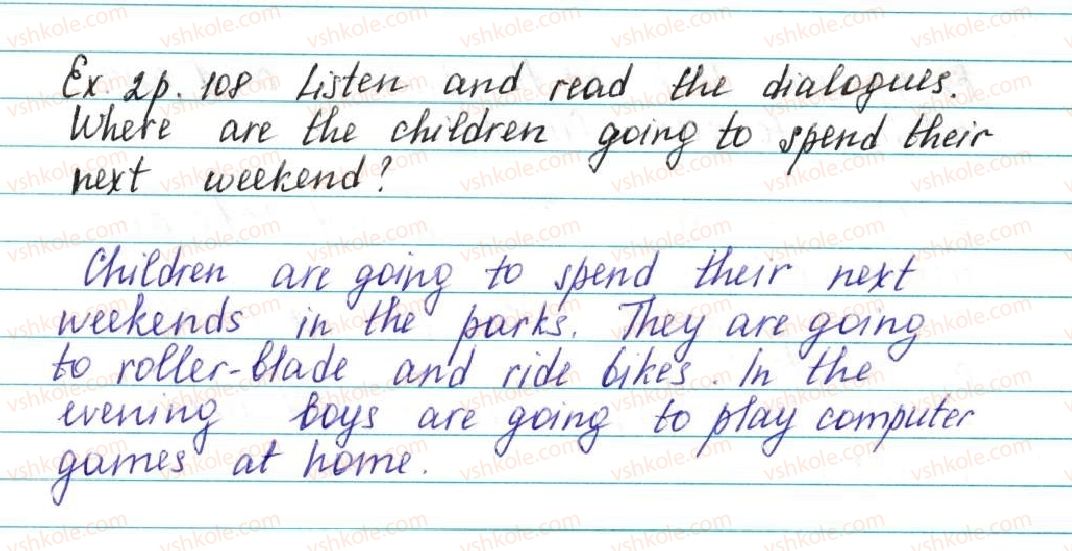 Ex. 2 p. 108 Listen and read the dialogues.
Where are the children going to spend their
next weekend?
Children are going to spend their next
weekends in the parks. They are going
to roller-blade and ride bikes. In the
evening boys are going to play computer
games at home.